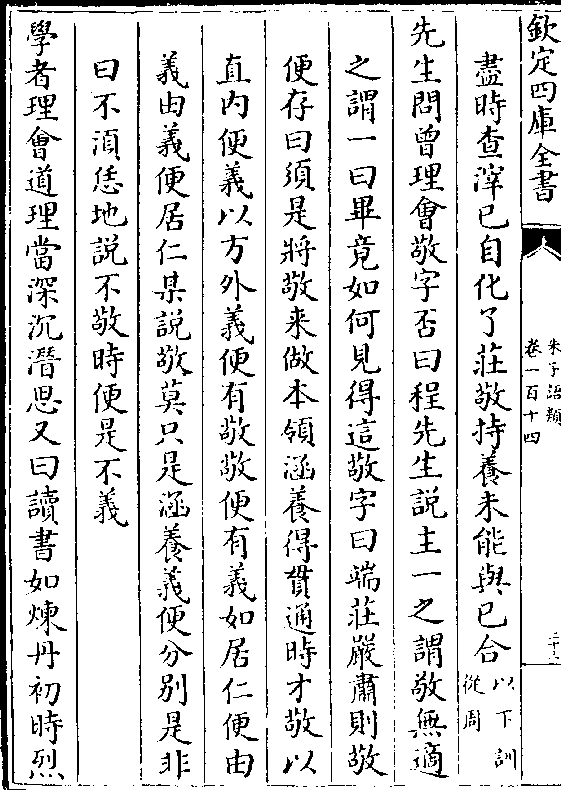 欽定四庫全書
朱子語類
卷一百十四
盡時查滓已自化了莊敬持養未能與已合以下訓從周
先生問曾理會敬字否曰程先生說主一之謂敬無適
之謂一曰畢竟如何見得這敬字曰端莊嚴肅則敬
便存曰須是將敬来做本領涵養得貫通時才敬以
直内便義以方外義便有敬敬便有義如居仁便由
義由義便居仁某說敬莫只是涵養義便分别是非
曰不須恁地説不敬時便是不義
學者理會道理當深沉潛思又曰讀書如煉丹初時烈